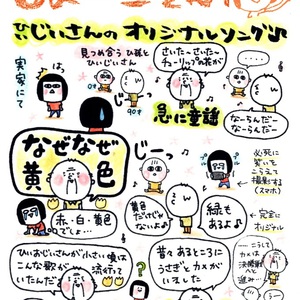 ひいじいさんの オリジナルソング♪
実家にて
は。
見つめ合う ひ孫と
ひいじいさん
90才
さいた〜さいた〜
チューリップの花が
・・・・
急に童謡
なーらんだー
なーらんだー
なぜなぜ
黄色
じーっ
必死に
笑いを
こらえて
撮影する
(スマホ)
赤・白・黄色
でしょ…
黄色
だけがじゃ
ないよ♪
緑も
あるよ♪
完全に
オリジナル
ひいおじいさんが小さい頃は
こんな歌が
流行って
いたんだ
昔々あるところに
うさぎとカメが
いました
…こうして
カメは
決勝戦
へと
進み…